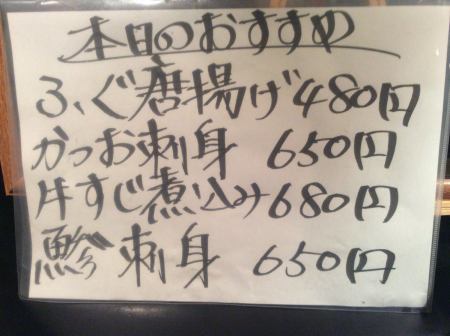 本日のおすすめ
ふぐ唐揚げ480円
かつお刺身 650円
牛すじ煮込み680円
鯵 刺身 650円